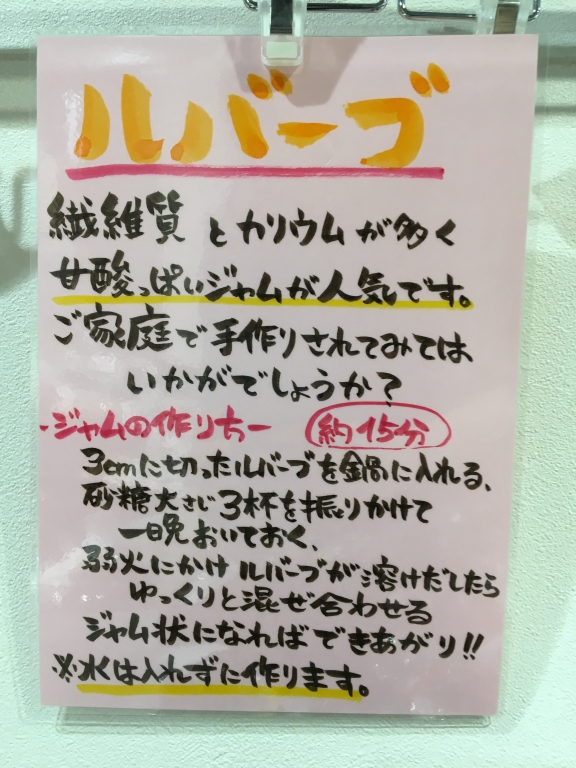 ルバーブ
繊維質とカリウムが多く
甘酸っぱいジャムが人気です。
ご家庭で手作りされてみては
いかがでしょうか？
-ジャムの作り方- 約15分
3cmに切ったルバーブを鍋に入れる、
砂糖大さじ3杯を振りかけて
一晩おいておく、
弱火にかけルバーブが溶けだしたら
ゆっくりと混ぜ合わせる
ジャム状になればできあがり!!
※水は入れずに作ります。